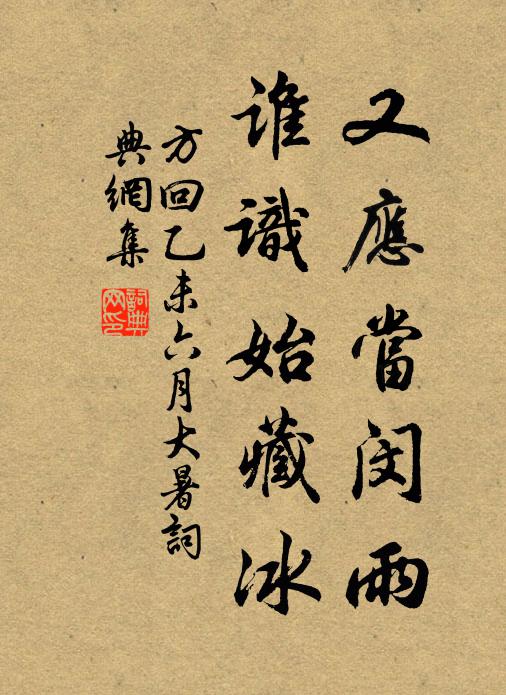 又應當閔雨
誰識始藏冰
方回乙未六月大暑詞
典網集
詞典網印